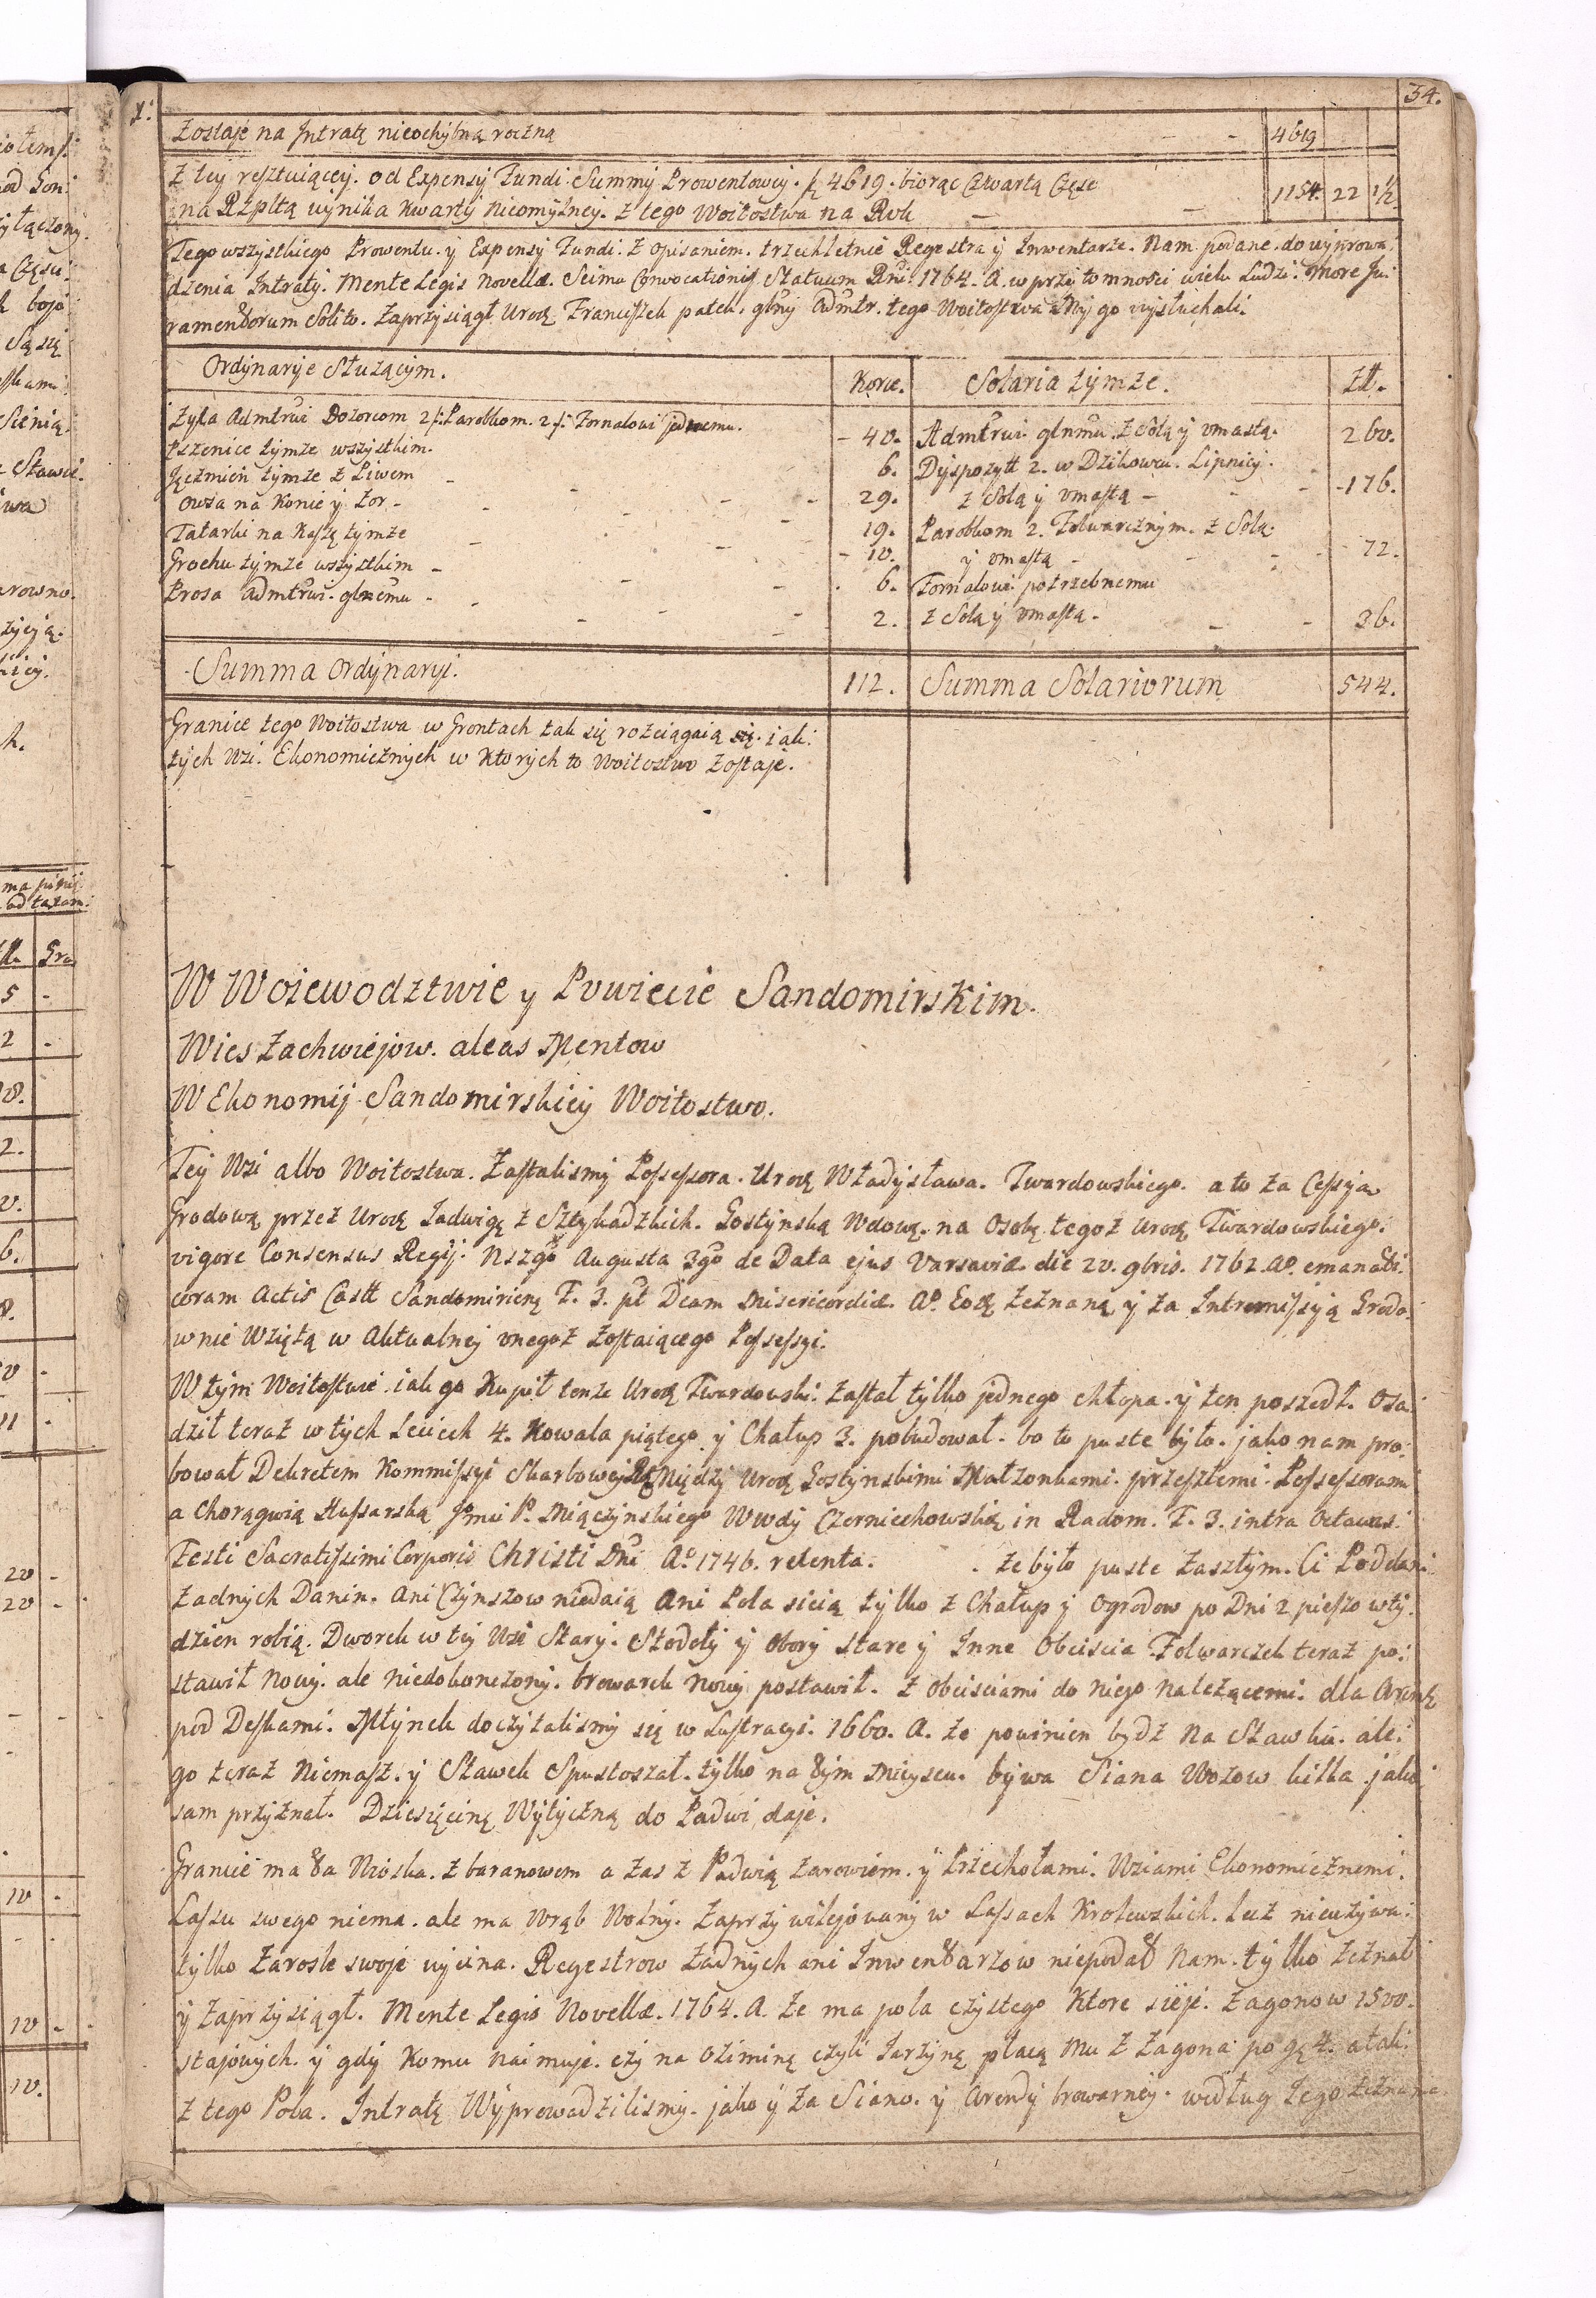 34.
Zostaje na Intratę nieochybną roczną - - 4619
Z tey resztuiącey. od Expensy Fundi Summy Prowentowey. 4619. biorąc Czwartą Częsc
na Rzpltą wynika Kwarty Nieomylney. z tego Woitostwa na Rok - - 1154. 22 1/2
Tego wszystkiego Prowentu. y Expensy Fundi. z opisaniem. trzechletnie Regestra y Inwentarze. Nam podane. do wyprowa:
dzenia Intraty. Mente Legis Novellæ. Seimu Convocationis Statuum Rni: 1764. A. w przytomności wielu Ludzi. more Ju:
ramentorum Solito. Zaprzysiągł Urodz Franciszek patek. głny Admtr. tego Woitostwa a My go wysłuchali.
Ordynarye Służącym. Korce. Solaria tymze. Zł.
Zyta Admtrwi Dozorcom 2/: Parobkom. 2/: Fornalowi jednemu. - 40. Admtrwi głnmu. z Solą y vmastą. 260.
Pszenice tymze wszystkim. 6. Dyspozytt 2. w Dzikowcu. Lipnicy.
Jęczmień tymze z Piwem - - - 29. z Solą y vmastą - - - 176.
Owsa na Konie y Zor - - - 19. Parobkom 2. Folwarcznym. z Solą
Tatarki na Kaszę tymze - - - 10. y vmastą - - - 72.
Grochu tymze wszystkim - - 6. Fornalowi potrzebnemu
Prosa Admtrwi. głnemu - - - 2. z Solą y vmastą. - - 36.
Summa Ordynaryi. 112. Summa Solariorum 544.
Granice tego Woitostwa w Grontach tak się rościągaią się. iak:
tych Wsi. Ekonomicznych w Ktorych to Woitostwo Zostaje.
W Wojewodztwie y Powiecie Sandomirskim.
Wies Zachwiejow. aleas Mentow
W Ekonomij Sandomirskiey Woitostwo.
Tey Wsi albo Woitostwa. Zastalismy Possessora. Urodz Władysława. Twardowskiego. a to za Cessyą
Grodową przez Urodz Jadwigę z Gostynską Wdowę. na Osobę tegoz Urodz Twardowskiego.
vigore Consensus Regij. Nszgo Augusta 3go de Data ejus Varsaviæ die 20. 9bris. 1762. Ao. emanati.
coram Actis Castt Sandomirien F. 3. pt Dcam Misericordiæ. Ao. Eod zeznaną y za Intromissyją Grodo:
wnie Wziętą w Aktualney onegoz zostaiącego Possessyi.
W tym Woitostwie. iak go Kupił tenze Urodz Twardowski. zastał tylko jednego chłopa. y ten poszedł. Osa:
dził teraz w tych Leciech 4. Kowala piątego y Chałup 3. pobudował. bo to puste było. jako nam pro:
bował Dekretem Kommissyi Skarbowey Między Urodz Gostynskimi Małzonkami. przeszłemi. Possessorami
a Chorągwią Hussarską Jmci P. Miączynskiego Wwdy Czerniechowskie in Radom. F. 3. intra Octavas.
Festi Sacratissimi Corporis Christi Dni Ao. 1746. relenta. . ze było puste zaszłym. Ci Poddani
Zadnych Danin. ani Czynszow niedaią Ani Pola sieią tylko z Chałup y Ogrodow po Dni 2 pieszo w ty:
dzien robią. Dworek w tey Wsi Stary. Stodoły y Obory stare y Inne Obeiscia Folwarczek teraz po:
stawił Nowy. ale niedokonczony. browarek Nowy postawił. z Obeisciami do niego należącemi. dla Arendę
pod Deskami. Młynek doczytalismy się w Lustracyi. 1660. A. ze powinien bydz na Stawku. ale:
go teraz Niemasz. y Stawek Spustoszał. tylko na tym Mieyscu. bywa Siana Wozow kilka jako
sam przyznał. Dziesięcinę Wytyczną do Padwi daje.
Granice ma ta Wioska. z baranowem a zas z Padwią Zarowiem. y Przechołami. Wsiami Ekonomicznemi.
Lassu swego niema. ale ma Wrąb Wolny. Zaprzywilejowany w Lassach Krolewskich. lecz nieuzywa:
tylko Zarosle swoje wycina. Regestrow Zadnych ani Inwentarzow niepodał Nam. tylko zeznał
y zaprzysiągł. Mente Legis Novellæ. 1764. A. ze ma pola czystego Ktore sieje. Zagonow 1500.
stajowych. y gdy Komu naimuje. czy na oziminę czyli Jarzynę płacą Mu z Zagona po g 4. a tak
z tego Pola. Intratę Wyprowadzilismy. jako y za Siano. y Arendy browarney. według Jego zeznania